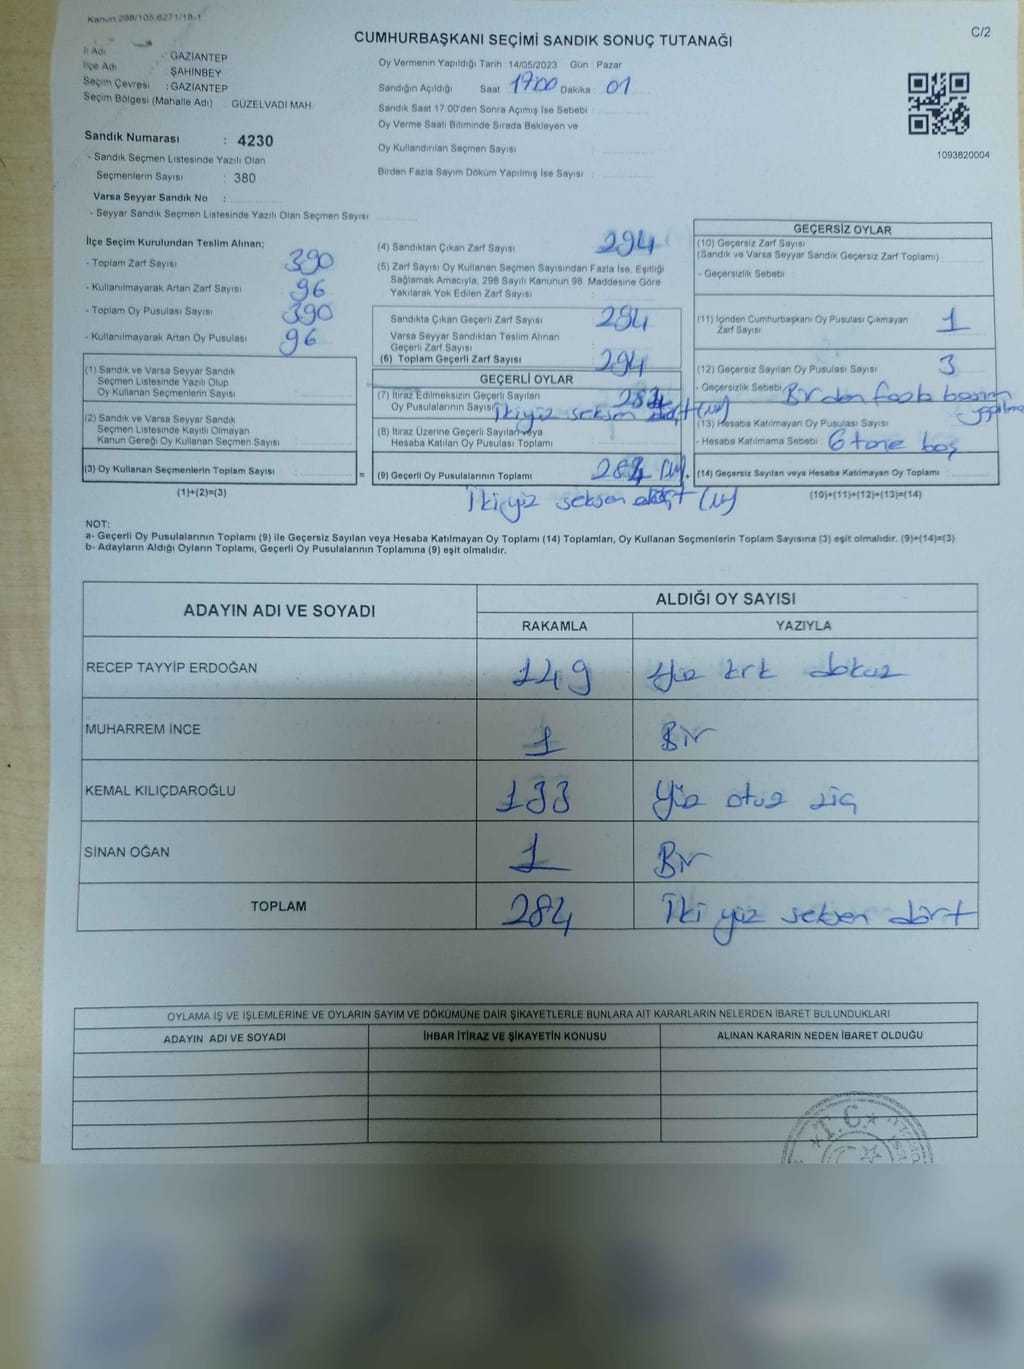 Kanun 298/105,6271/18-1
C/2
CUMHURBAŞKANI SEÇİMİ SANDIK SONUÇ TUTANAĞI
İl Adı : GAZİANTEP
İlçe Adı : ŞAHİNBEY
Seçim Çevresi : GAZİANTEP
Seçim Bölgesi (Mahalle Adı) GÜZELVADİ MAH.
Sandık Numarası : 4230
- Sandık Seçmen Listesinde Yazılı Olan
Seçmenlerin Sayısı : 380
Varsa Seyyar Sandık No :
- Seyyar Sandık Seçmen Listesinde Yazılı Olan Seçmen Sayısı
Oy Vermenin Yapıldığı Tarih : 14/05/2023 Gün : Pazar
Sandığın Açıldığı Saat 17:00 Dakika : 01
Sandık Saat 17:00'den Sonra Açımış İse Sebebi :
Oy Verme Saati Bitiminde Sırada Bekleyen ve
Oy Kullandırılan Seçmen Sayısı :
Birden Fazla Sayım Döküm Yapılmış İse Sayısı :
1093820004
İlçe Seçim Kurulundan Teslim Alınan;
- Toplam Zarf Sayısı : 390
- Kullanılmayarak Artan Zarf Sayısı : 96
- Toplam Oy Pusulası Sayısı : 390
- Kullanılmayarak Artan Oy Pusulası : 96
(1) Sandık ve Varsa Seyyar Sandık
Seçmen Listesinde Yazılı Olup
Oy Kullanan Seçmenlerin Sayısı :
(2) Sandık ve Varsa Seyyar Sandık
Seçmen Listesinde Kayıtlı Olmayan
Kanun Gereği Oy Kullanan Seçmen Sayısı :
(3) Oy Kullanan Seçmenlerin Toplam Sayısı :
(1)+(2)=(3)
=
(4) Sandıktan Çıkan Zarf Sayısı : 294
(5) Zarf Sayısı Oy Kullanan Seçmen Sayısından Fazla İse, Eşitliği
Sağlamak Amacıyla, 298 Sayılı Kanunun 98. Maddesine Göre
Yakılarak Yok Edilen Zarf Sayısı :
Sandıkta Çıkan Geçerli Zarf Sayısı : 294
Varsa Seyyar Sandıktan Teslim Alınan
Geçerli Zarf Sayısı :
(6) Toplam Geçerli Zarf Sayısı : 294
GEÇERLİ OYLAR
(7) İtiraz Edilmeksizin Geçerli Sayılan 284
Oy Pusulalarının Sayısı İkiyüz seksen dört
(8) İtiraz Üzerine Geçerli Sayılan veya
Hesaba Katılan Oy Pusulası Toplamı :
(9) Geçerli Oy Pusulalarının Toplamı : 284
İkiyüz seksen dört
GEÇERSİZ OYLAR
(10) Geçersiz Zarf Sayısı
(Sandık ve Varsa Seyyar Sandık Geçersiz Zarf Toplamı)
- Geçersizlik Sebebi :
(11) İçinden Cumhurbaşkanı Oy Pusulası Çıkmayan
Zarf Sayısı : 1
(12) Geçersiz Sayılan Oy Pusulası Sayısı : 3
- Geçersizlik Sebebi : Birden fazla basım
yapılma
(13) Hesaba Katılmayan Oy Pusulası Sayısı :
- Hesaba Katılmama Sebebi : 6 tane boş
(14) Geçersiz Sayılan veya Hesaba Katılmayan Oy Toplamı :
(10)+(11)+(12)+(13)=(14)
NOT:
a- Geçerli Oy Pusulalarının Toplamı (9) ile Geçersiz Sayılan veya Hesaba Katılmayan Oy Toplamı (14) Toplamları, Oy Kullanan Seçmenlerin Toplam Sayısına (3) eşit olmalıdır. (9)+(14)=(3)
b- Adayların Aldığı Oyların Toplamı, Geçerli Oy Pusulalarının Toplamına (9) eşit olmalıdır.
ADAYIN ADI VE SOYADI
ALDIĞI OY SAYISI
RAKAMLA YAZIYLA
RECEP TAYYİP ERDOĞAN 149 Yüz kırk dokuz
MUHARREM İNCE 1 Bir
KEMAL KILIÇDAROĞLU 133 Yüz otuz üç
SİNAN OĞAN 1 Bir
TOPLAM 284 İki yüz seksen dört
OYLAMA İŞ VE İŞLEMLERİNE VE OYLARIN SAYIM VE DÖKÜMÜNE DAİR ŞİKAYETLERLE BUNLARA AİT KARARLARIN NELERDEN İBARET BULUNDUKLARI
ADAYIN ADI VE SOYADI İHBAR İTİRAZ VE ŞİKAYETİN KONUSU ALINAN KARARIN NEDEN İBARET OLDUĞU
T.C.